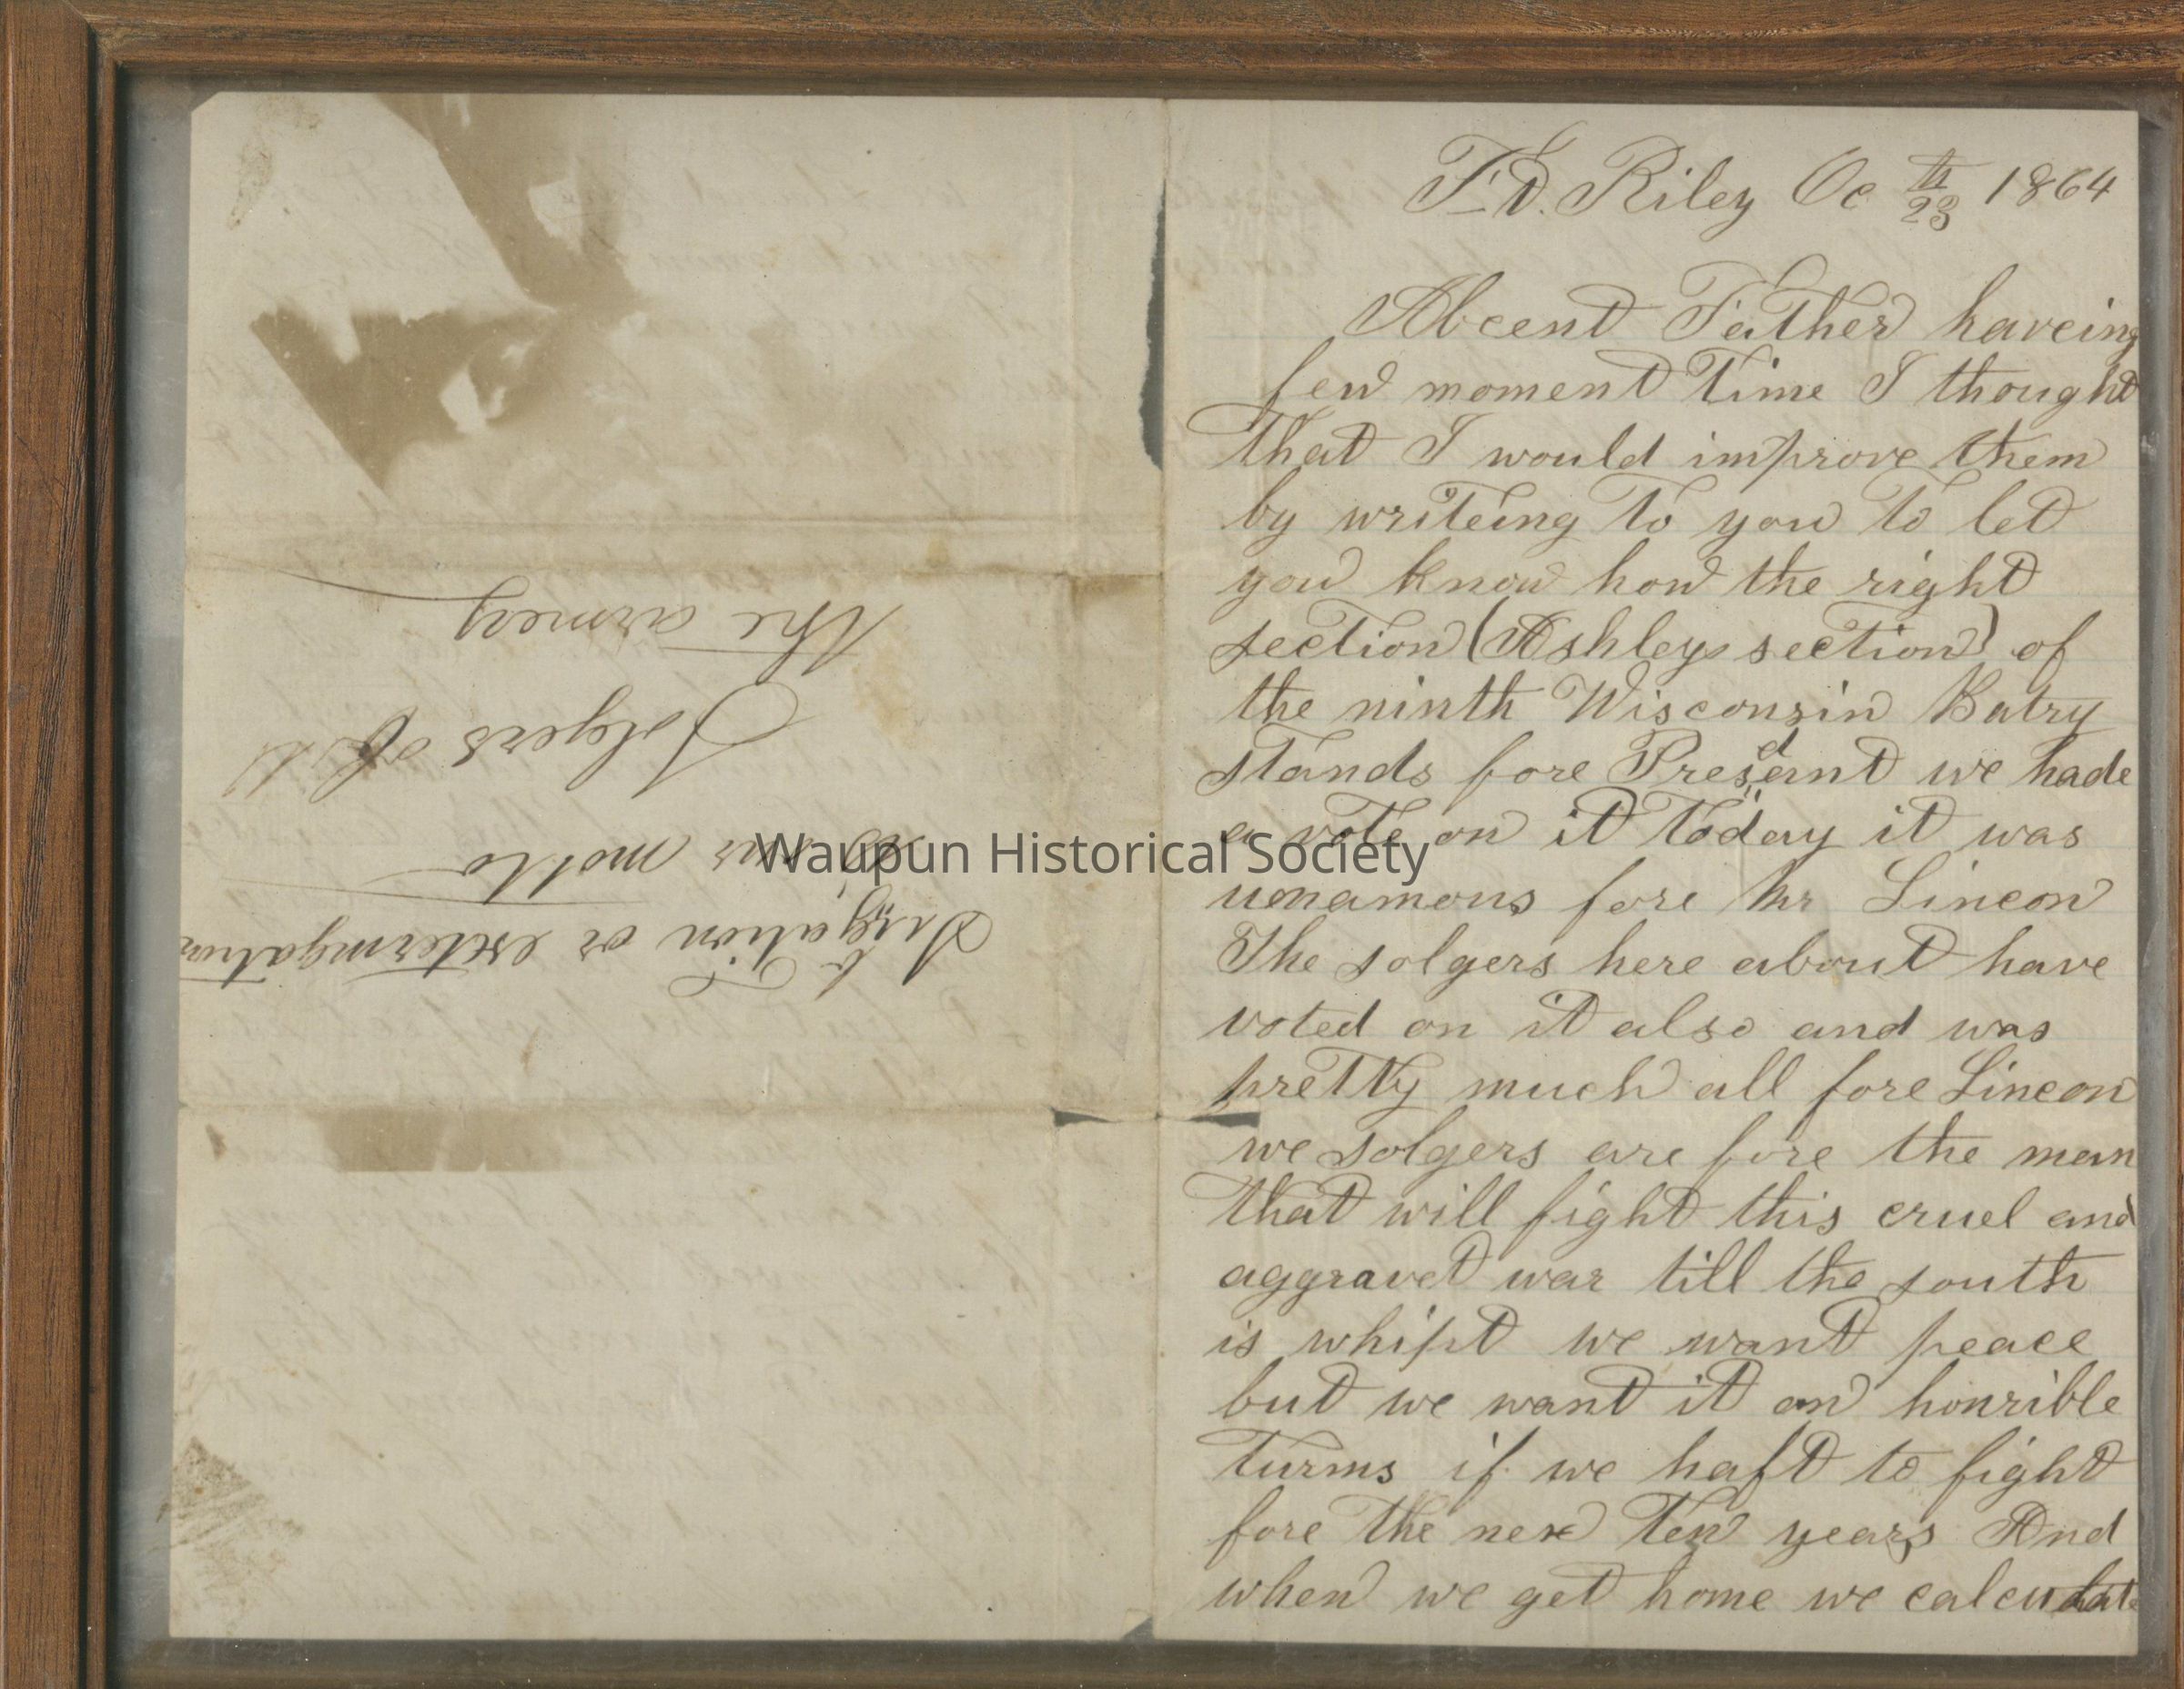 F.D. Riley Oc 23th 1864
Abcent Father haveing
few moment time I thought
that I would improve them
by writeing to you to let
you know how the right
section (Ashleys section) of
the ninth Wisconsin Batry
stands fore Presedant we hade
a vote on it today it was
unamous fore Mr Lincon
The solgers here about have
voted on it also and was
pretty much all fore Lincon
we solgers are fore the man
that will fight this cruel and
aggravet war till the south
is whipt we want peace
but we want it on honrible
turms if we haft to fight
fore the nex ten years And
when we get home we calculate
or extermgation
is our motto
Solgers of
the armey
Waupun Historical Society